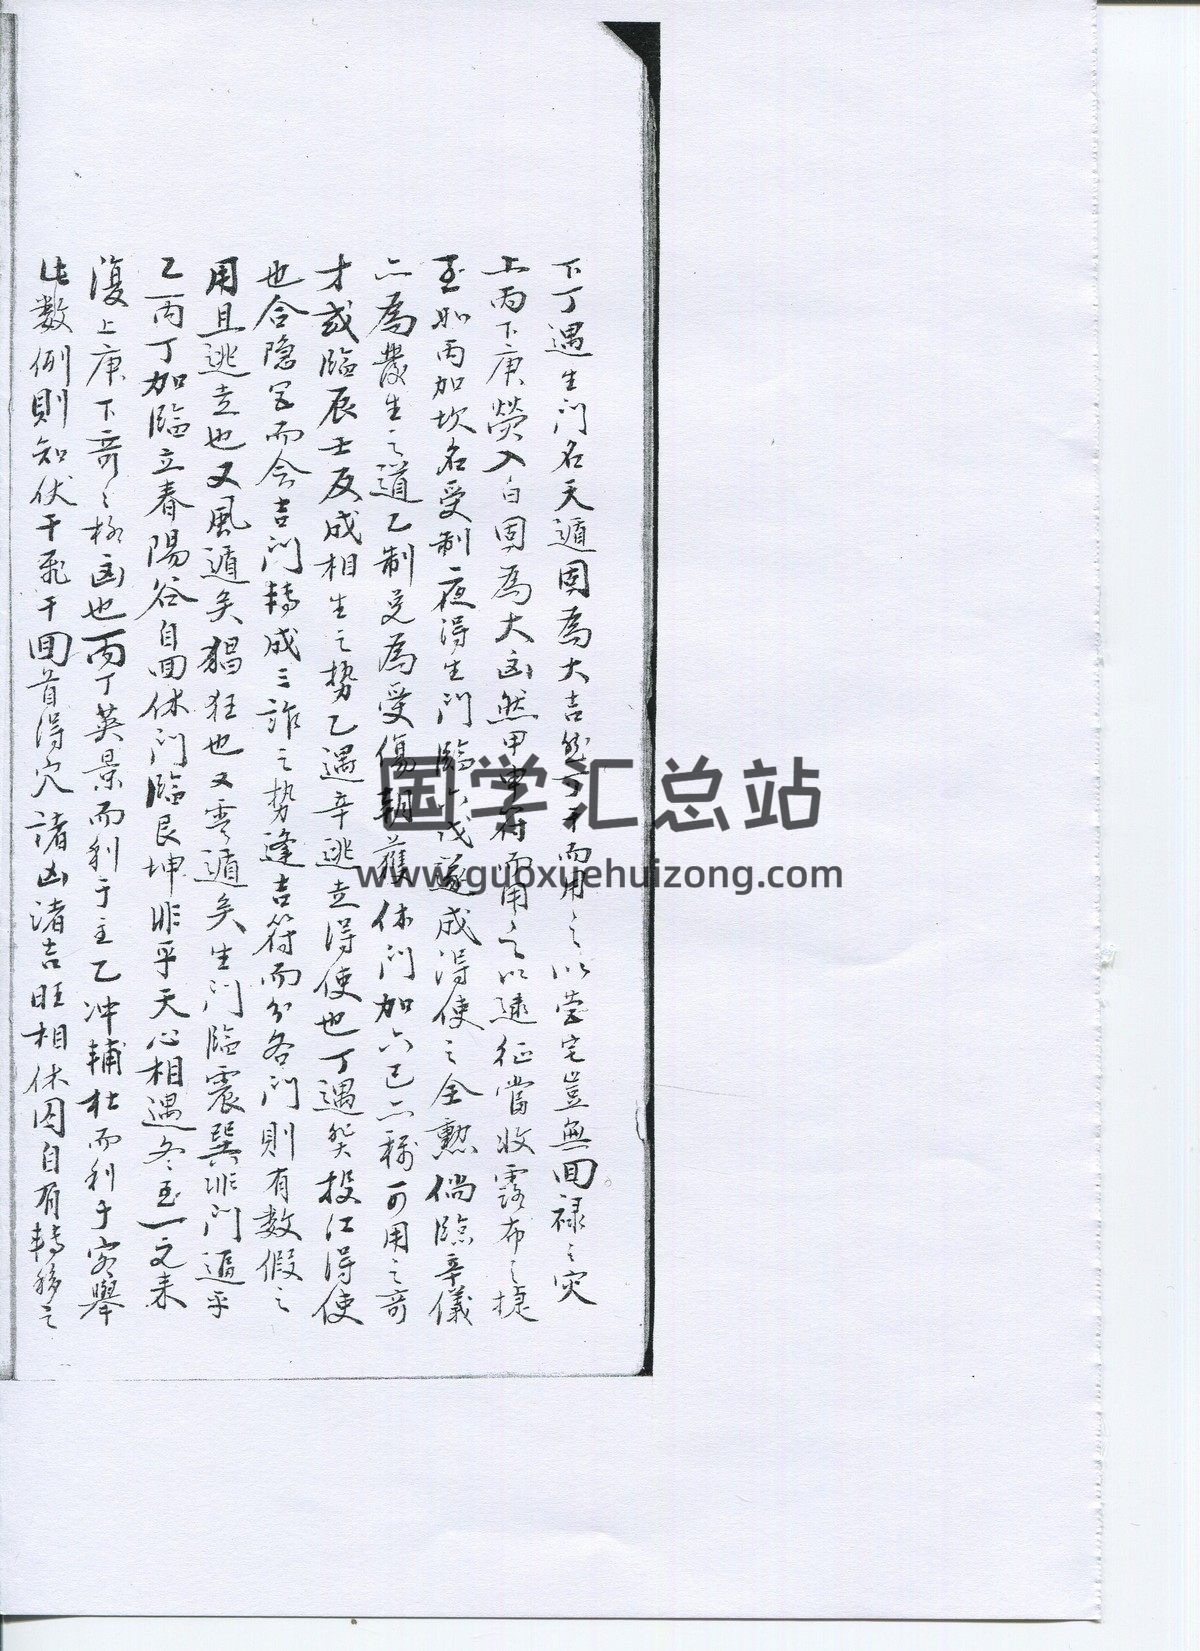 下丁遇生门名天遁固為大吉然丁才而用之以营宅豈無回禄之灾
上丙下庚熒入白固為大凶然甲申符而用之以遠征當收露布之捷
至如丙加坎名受制夜得生门臨六戊遂成得使之全勲倘臨辛儀
二為發生之道乙制兑為受傷朝蓷休门加六己二称可用之奇
才或臨辰士反成相生之势乙遇辛逃走得使也丁遇癸投江得使
也合隐宫而会吉门轉成三詐之势逢吉符而分各门則有数假之
用且逃走也又風遁矣猖狂也又雲遁矣生门臨震巽非门逼乎
乙丙丁加臨立春陽谷自回休门臨艮坤非乎天心相遇冬至一文来
復上庚下奇之极凶也丙丁英景而利于主乙冲輔杜而利于客舉
此数例則知伏干飛干回首得穴諸凶诸吉旺相休囚自有轉移之
国学汇总站
www.guoxuehuizong.com